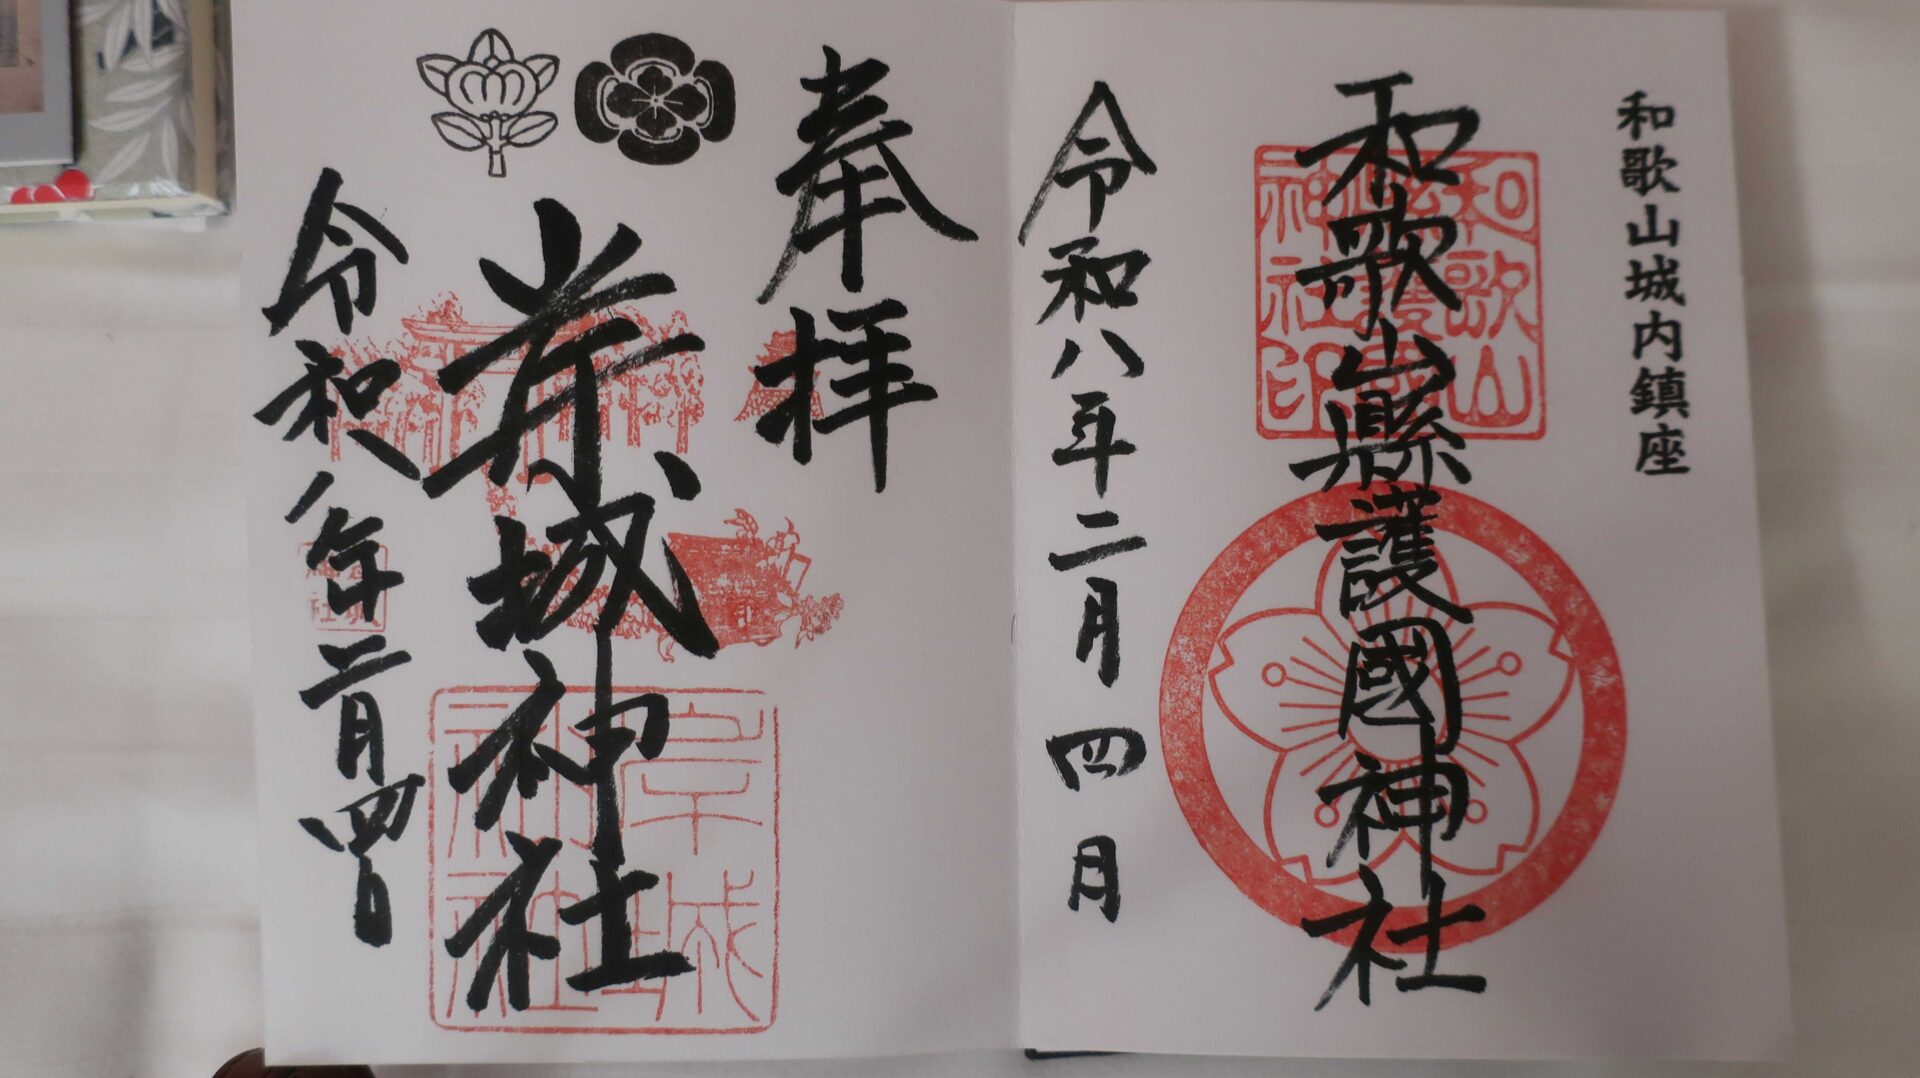 和歌山城内鎮座
和歌山縣護國神社
和歌山
縣護國
神社印
令和八年二月四日
奉拝
岸城神社
岸城
神社
令和八年二月四日